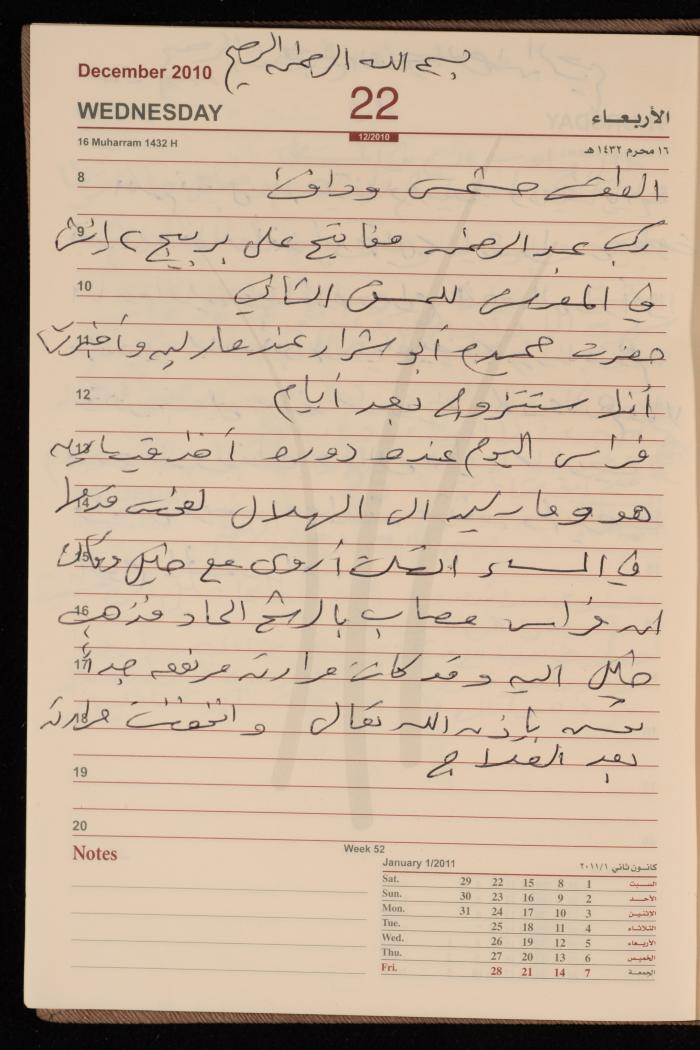 بسم الله الرحمن الرحيم
December 2010
WEDNESDAY
22
12/2010
الأربعاء
16 Muharram 1432 H
١٦ محرم ١٤٣٢ هـ
8
الطقس مشمس ودافئ
9
ركب عبد الرحمن مفاتيح على بربيج ٢ إنش
10
في المغرس للمسق الثاني
11
حضرت حميدة أبو شرار عند مارليه وأخبرت
12
أنها ستتزوج بعد أيام
13
فراس اليوم عنده دورة أخذ
14
هو ومارليه الى الهلال
15
في المساء اتصلت أروى مع خليل وقالت
16
ان فراس مصاب بالرشح الحاد فذهب
17
خليل اليه وقد كانت حرارته مرتفعة جداً
18
تحسن بإذن الله تعالى وانخفضت حرارته
بعد العلاج
19
20
Notes
Week 52
January 1/2011
كانون ثاني ٢٠١١/١
Sat. 29 22 15 8 1 السبت
Sun. 30 23 16 9 2 الأحد
Mon. 31 24 17 10 3 الإثنين
Tue. 25 18 11 4 الثلاثاء
Wed. 26 19 12 5 الأربعاء
Thu. 27 20 13 6 الخميس
Fri. 28 21 14 7 الجمعة